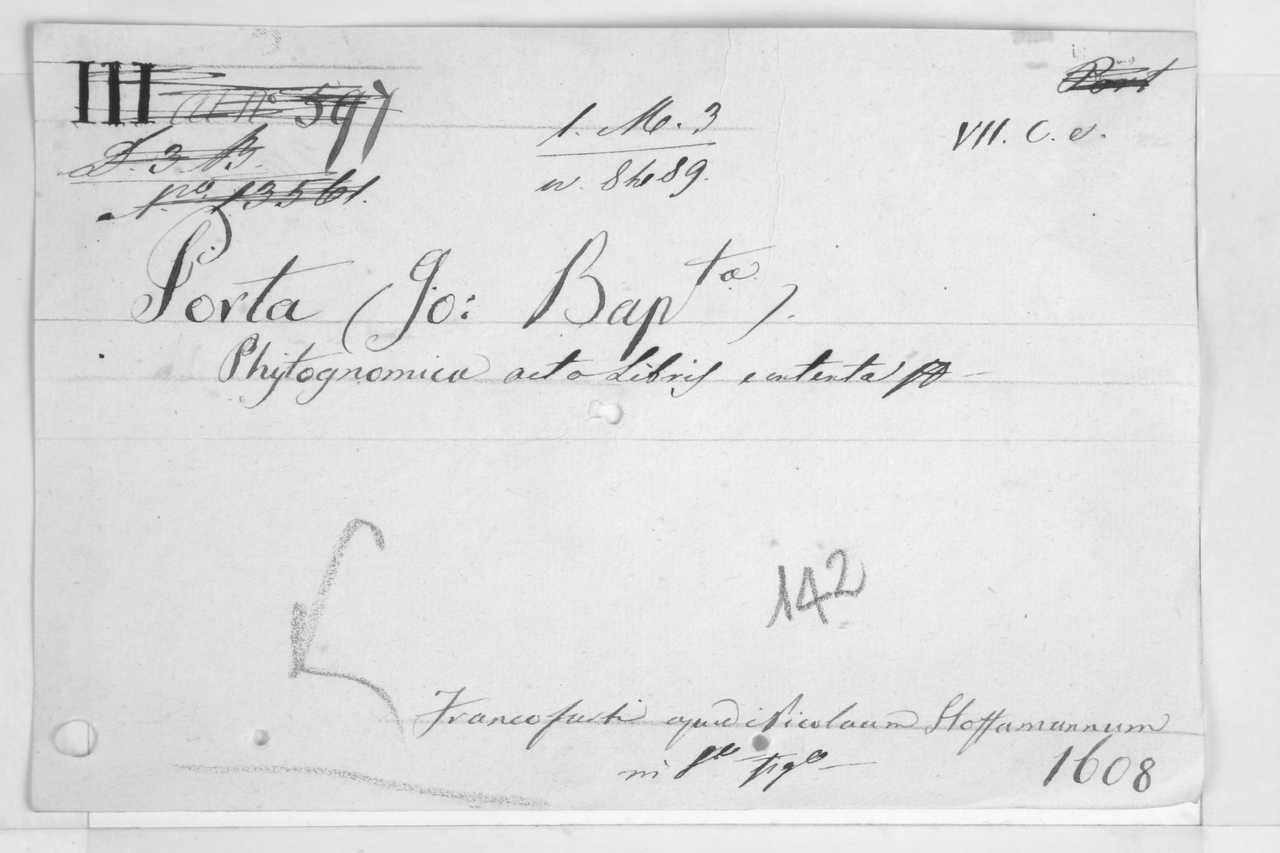 III 597
D. 3. B.
nro. 13561.
1. M. 3
n. 8489.
Port
VII. C. e.
Porta (Jo: Bapta).
Phytognomica octo Libris contenta
142
Francofurti apud Nicolaum Hoffamannum
in 8vo figo
1608